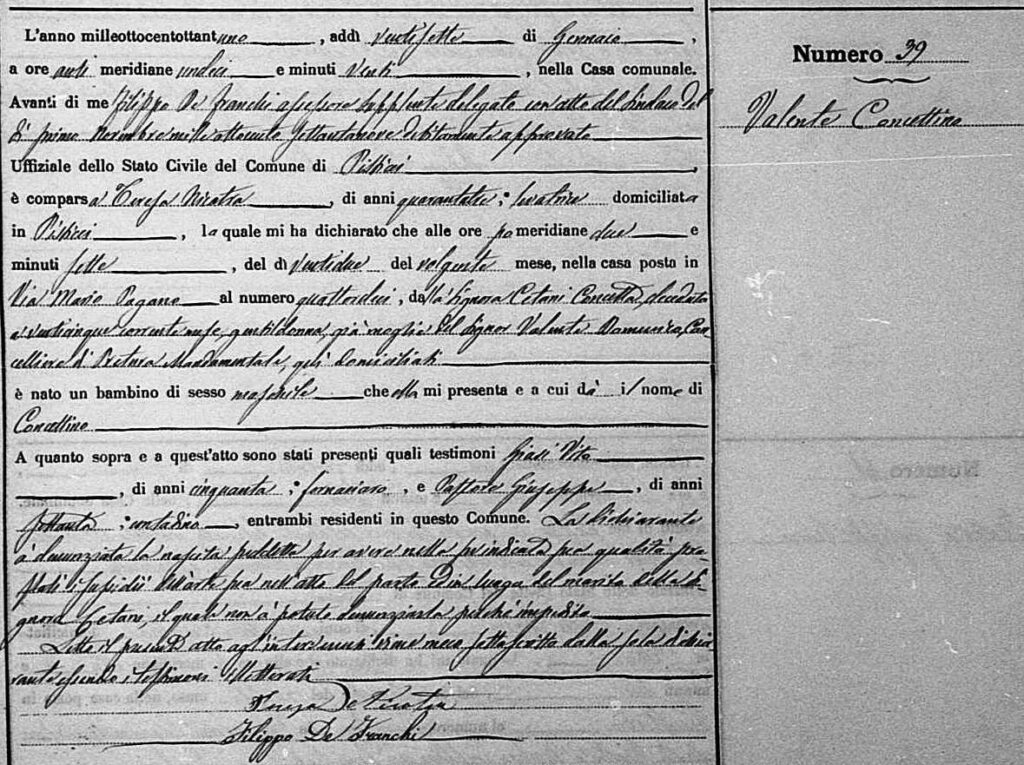 L'anno milleottocentottantuno, addì ventisette di Gennaio,
a ore anti meridiane undici e minuti venti, nella Casa comunale.
Avanti di me Filippo De Franchi assessore supplente delegato con atto del Sindaco del
dì primo Novembre mille ottocento settantanove debitamente approvato
Uffiziale dello Stato Civile del Comune di Pisticci,
è comparsa Teresa Nicotra, di anni quarantatre; levatrice domiciliata
in Pisticci, la quale mi ha dichiarato che alle ore po meridiane due e
minuti sette, del dì ventidue del volgente mese, nella casa posta in
Via Mario Pagano al numero quattordici, dalla Signora Cetani Concetta, deceduta
a venticinque corrente mese, gentildonna, già moglie del Signor Valente Domenico, Can
celliere di Pretura Mandamentale, quì domiciliati
è nato un bambino di sesso maschile che ella mi presenta e a cui dà il nome di
Concettino
A quanto sopra e a quest'atto sono stati presenti quali testimoni Giasi Vito
, di anni cinquanta; fornaciaro, e Pastore Giuseppe, di anni
settanta; contadino, entrambi residenti in questo Comune. La dichiarante
à denunziata la nascita suddetta per avere nella preindicata sua qualità pre
stati i sussidii dell'arte sua nell'atto del parto ed in luogo del marito della Si
gnora Cetani, il quale non à potuto denunziarla perchè impedito
Letto il presente atto agl'intervenuti viene meco sottoscritto dalla sola dichia
rante essendo i testimoni illetterati
Teresa De Nicotra
Filippo De Franchi
Numero 39
Valente Concettino